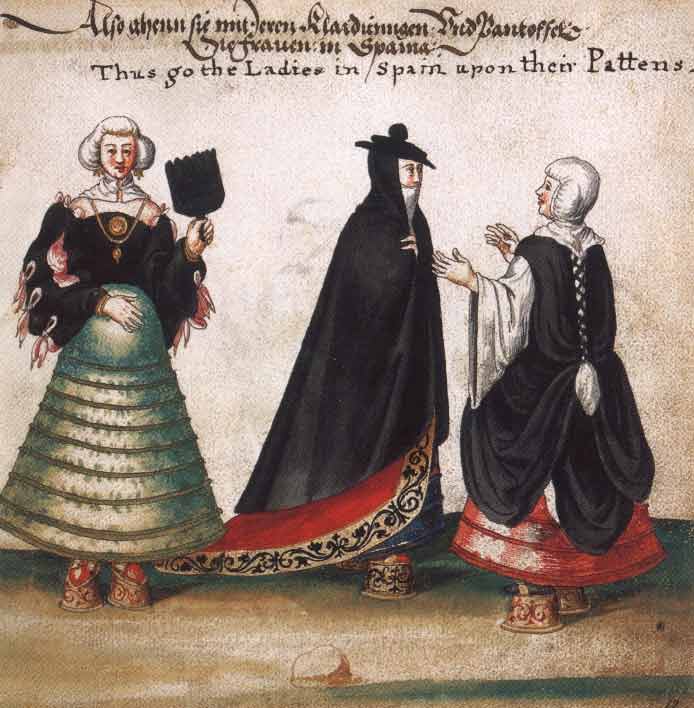 Also ghenn sie mit Jeren Klaidunngen Vnd Pantoffel
Die frauen in Spania
Thus go the Ladies in Spain upon their Pattens.